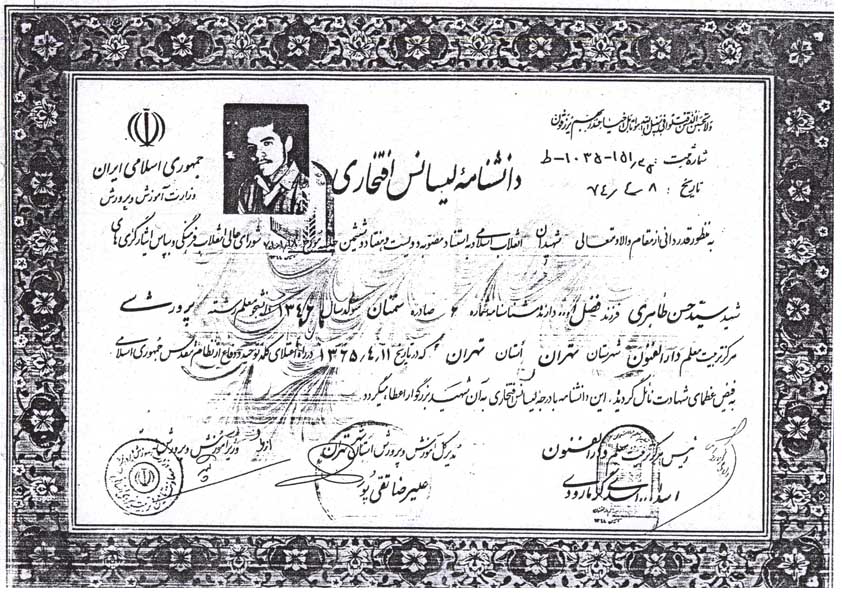 ولا تحسبن الذین قتلوا فی سبیل الله امواتا بل احیاء عند ربهم یرزقون
جمهوری اسلامی ایران
وزارت آموزش و پرورش
شماره ثبت: ۱۰۳۵-۱۵۱ - ط
تاریخ : ۷۴/۴/۸
دانشنامهٔ لیسانس افتخاری
به منظور قدردانی از مقام والا و متعالی شهیدان انقلاب اسلامی و به استناد مصوبه دویست و هفتاد و ششمین جلسه شورای عالی انقلاب فرهنگی و بپاس ایثارگری های
شهید سید حسن طاهری فرزند فضل دارنده شناسنامه شماره ۶ صادره سمنان متولد سال دانشجو معلم رشته پرورشی
مرکز تربیت معلم دارالفنون شهرستان تهران استان تهران که در تاریخ ۱۳۶۵/۴/۱۱ در راه اعتلای کلمه توحید و دفاع از نظام مقدس جمهوری اسلامی
به فیض عظمای شهادت نائل گردید. این دانشنامه با درجه لیسانس افتخاری به آن شهید بزرگوار اعطا میگردد.
رئیس مرکز تربیت معلم دارالفنون
مدیر کل آموزش و پرورش استان تهران
علیرضا تقی پور
از طرف وزیر آموزش و پرورش